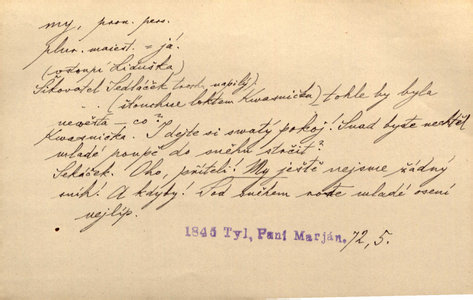 my, pron. pers.
plur. maiest. = já.
(vstoupí Liduška)
Šikovatel Sedláček trochu napilý).
(šťouchne loktem Kwasnička) tohle by byla
nevěsta – co?
Kwasnička. I dejte si svatý pokoj! Snad byste nechtěl
mladé poupě do sněhu strčit?
Sedláček. Oho, příteli! My ještě nejsme žádný
sníh! A kdyby! Pod sněhem roste mladé osení
nejlíp.
1845 Tyl, Paní Marján. 72, 5.